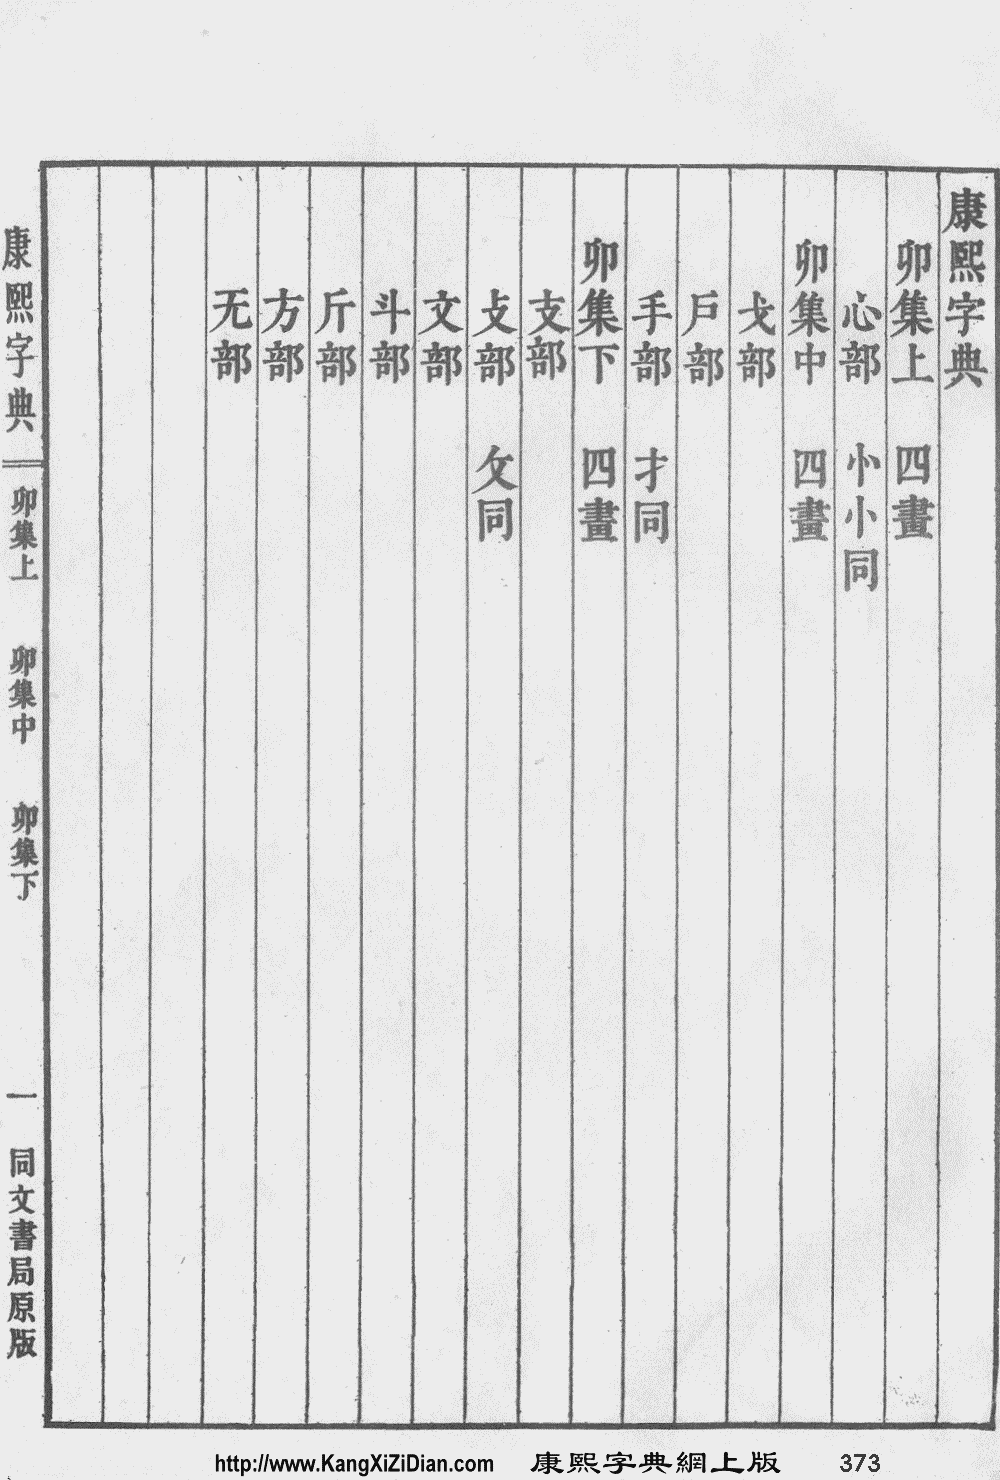 康熙字典
卯集上　四畫
心部　忄㣺同
卯集中　四畫
戈部
戶部
手部　扌同
卯集下　四畫
支部
攴部　攵同
文部
斗部
斤部
方部
无部
康熙字典　卯集上　卯集中　卯集下　一　同文書局原版
http://www.KangXiZiDian.com　康熙字典網上版　373